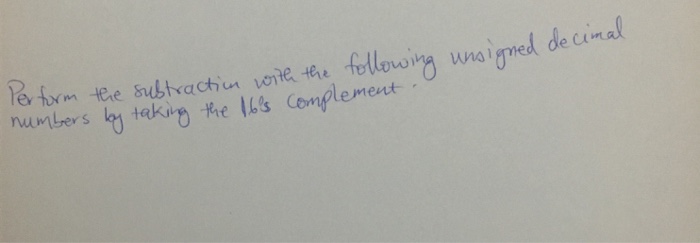 Perform the subtraction with the following unsigned decimal
numbers by taking the 16's complement.